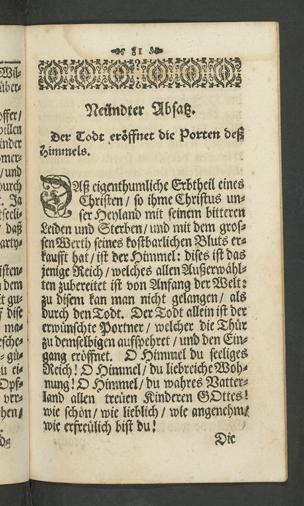 81
Neündter Absatz.
Der Todt eröffnet die Porten deß
Himmels.
Daß eigenthumliche Erbtheil eines
Christen / so ihme Christus un-
ser Heyland mit seinem bitteren
Leiden und Sterben / und mit dem gros-
sen Werth seines kostbarlichen Bluts er-
kaufft hat / ist der Himmel: dises ist das
jenige Reich / welches allen Außerwähl-
ten zubereitet ist von Anfang der Welt:
zu disem kan man nicht gelangen / als
durch den Todt. Der Todt allein ist der
erwünschte Portner / welcher die Thür
zu demselbigen auffsperet / und den Ein-
gang eröffnet. O Himmel du seeliges
Reich! O Himmel / du liebreiche Woh-
nung! O Himmel / du wahres Vatter-
land allen treüen Kinderen GOttes!
wie schön / wie lieblich / wie angenehm /
wie erfreülich bist du!
Die